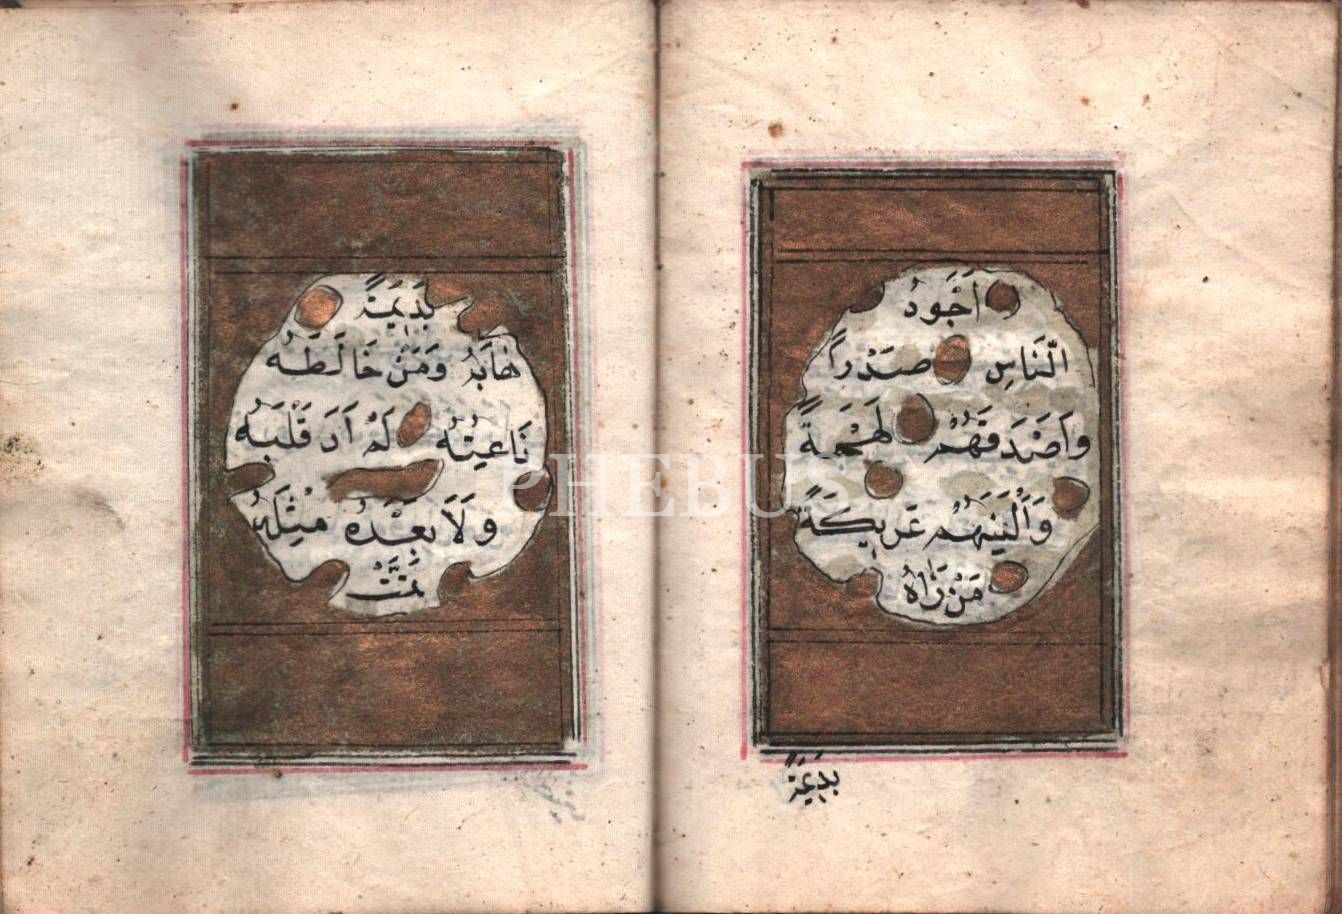 اَجْوَدُ
الَّنَاسِ صَدْراً
وَاَصْدَقَهُمْ لَهْجَةً
وَاَلْيَنَهُمْ عَرِيكَةً
مَنْ رَاٰهُ
بَدَيِهَةً
بَدَيهَةً
هَابَهُ وَمَنْ خَالَطَهُ
نَاعِتُهُ لَمْ اَرَ قَبْلَهُ
وَلَا بَعْدَهُ مِثْلَهُ
تَمَّتْ
PHEBUS